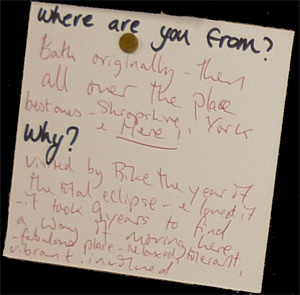 where are you from?
Bath originally - then
all over the place
best ones - Shropshire, York
& Here!
Why?
visited by Bike the year of
the total eclipse - & loved it
- it took 9 years to find
a way of moving here
- fabulous place - relaxed, tolerant,
vibrant, involved